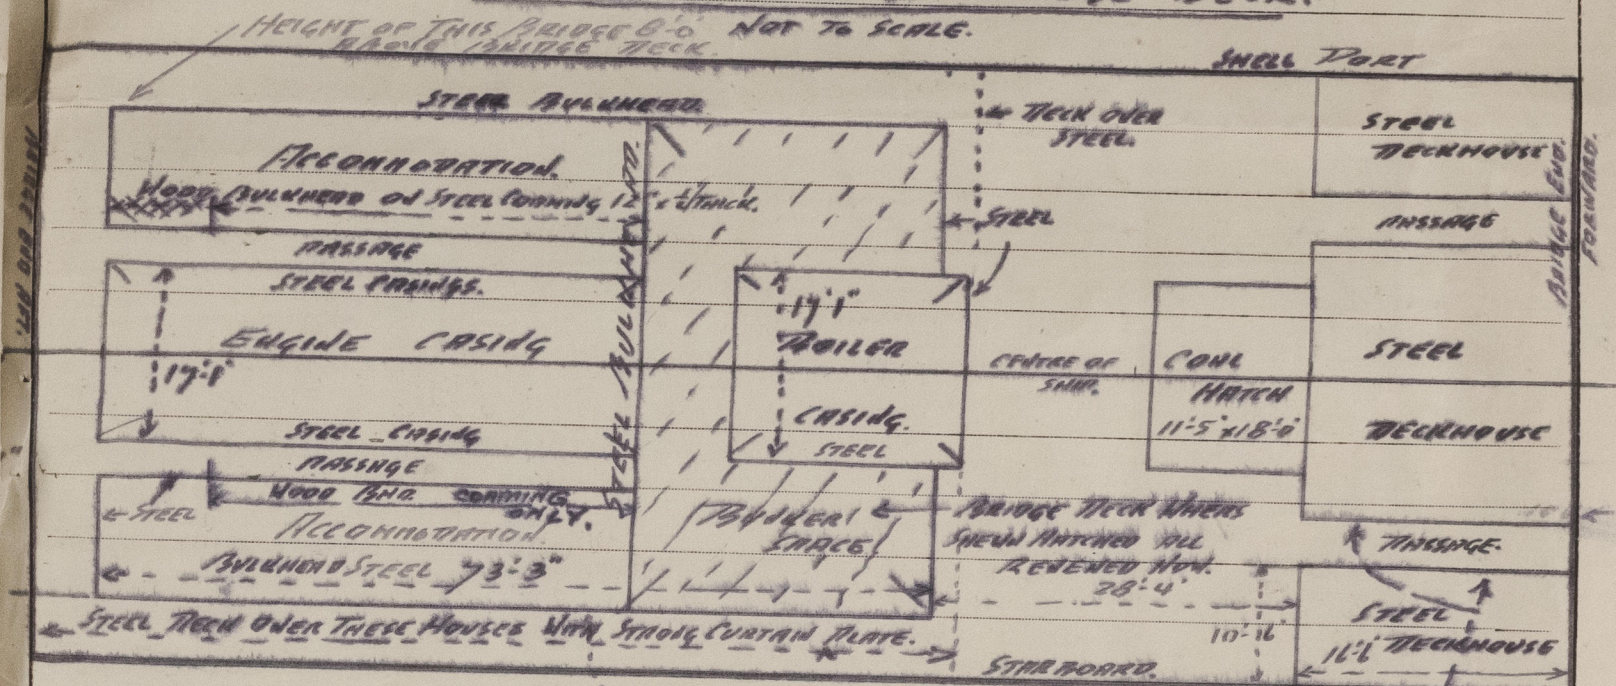 NOT TO SCALE.
HEIGHT OF THIS BRIDGE 8'-0"
ABOVE BRIDGE DECK.
SHELL PORT
STEEL BULKHEAD.
DECK OVER
STEEL.
STEEL
DECKHOUSE
ACCOMMODATION.
WOOD BULKHEAD ON STEEL COAMING 12" x 1/2" THICK.
STEEL BULKHEAD.
STEEL
PASSAGE
BRIDGE END.
FORWARD.
BRIDGE END AFT.
PASSAGE
STEEL CASINGS.
ENGINE CASING
17'-1"
STEEL CASING
17'-1"
BOILER
CASING.
STEEL
CENTRE OF
SHIP.
COAL
HATCH
11'-5" x 18'-0"
STEEL
DECKHOUSE
PASSAGE
WOOD BHD. COAMING
ONLY.
STEEL
ACCOMMODATION
BULKHEAD STEEL 73'-3"
BUNKER
SPACE
BRIDGE DECK WHERE
SHEWN HATCHED ALL
RENEWED NOW.
28'-4"
PASSAGE.
STEEL
DECKHOUSE
16'-6"
STEEL DECK OVER THESE HOUSES WITH STRONG CURTAIN PLATE.
STARBOARD.